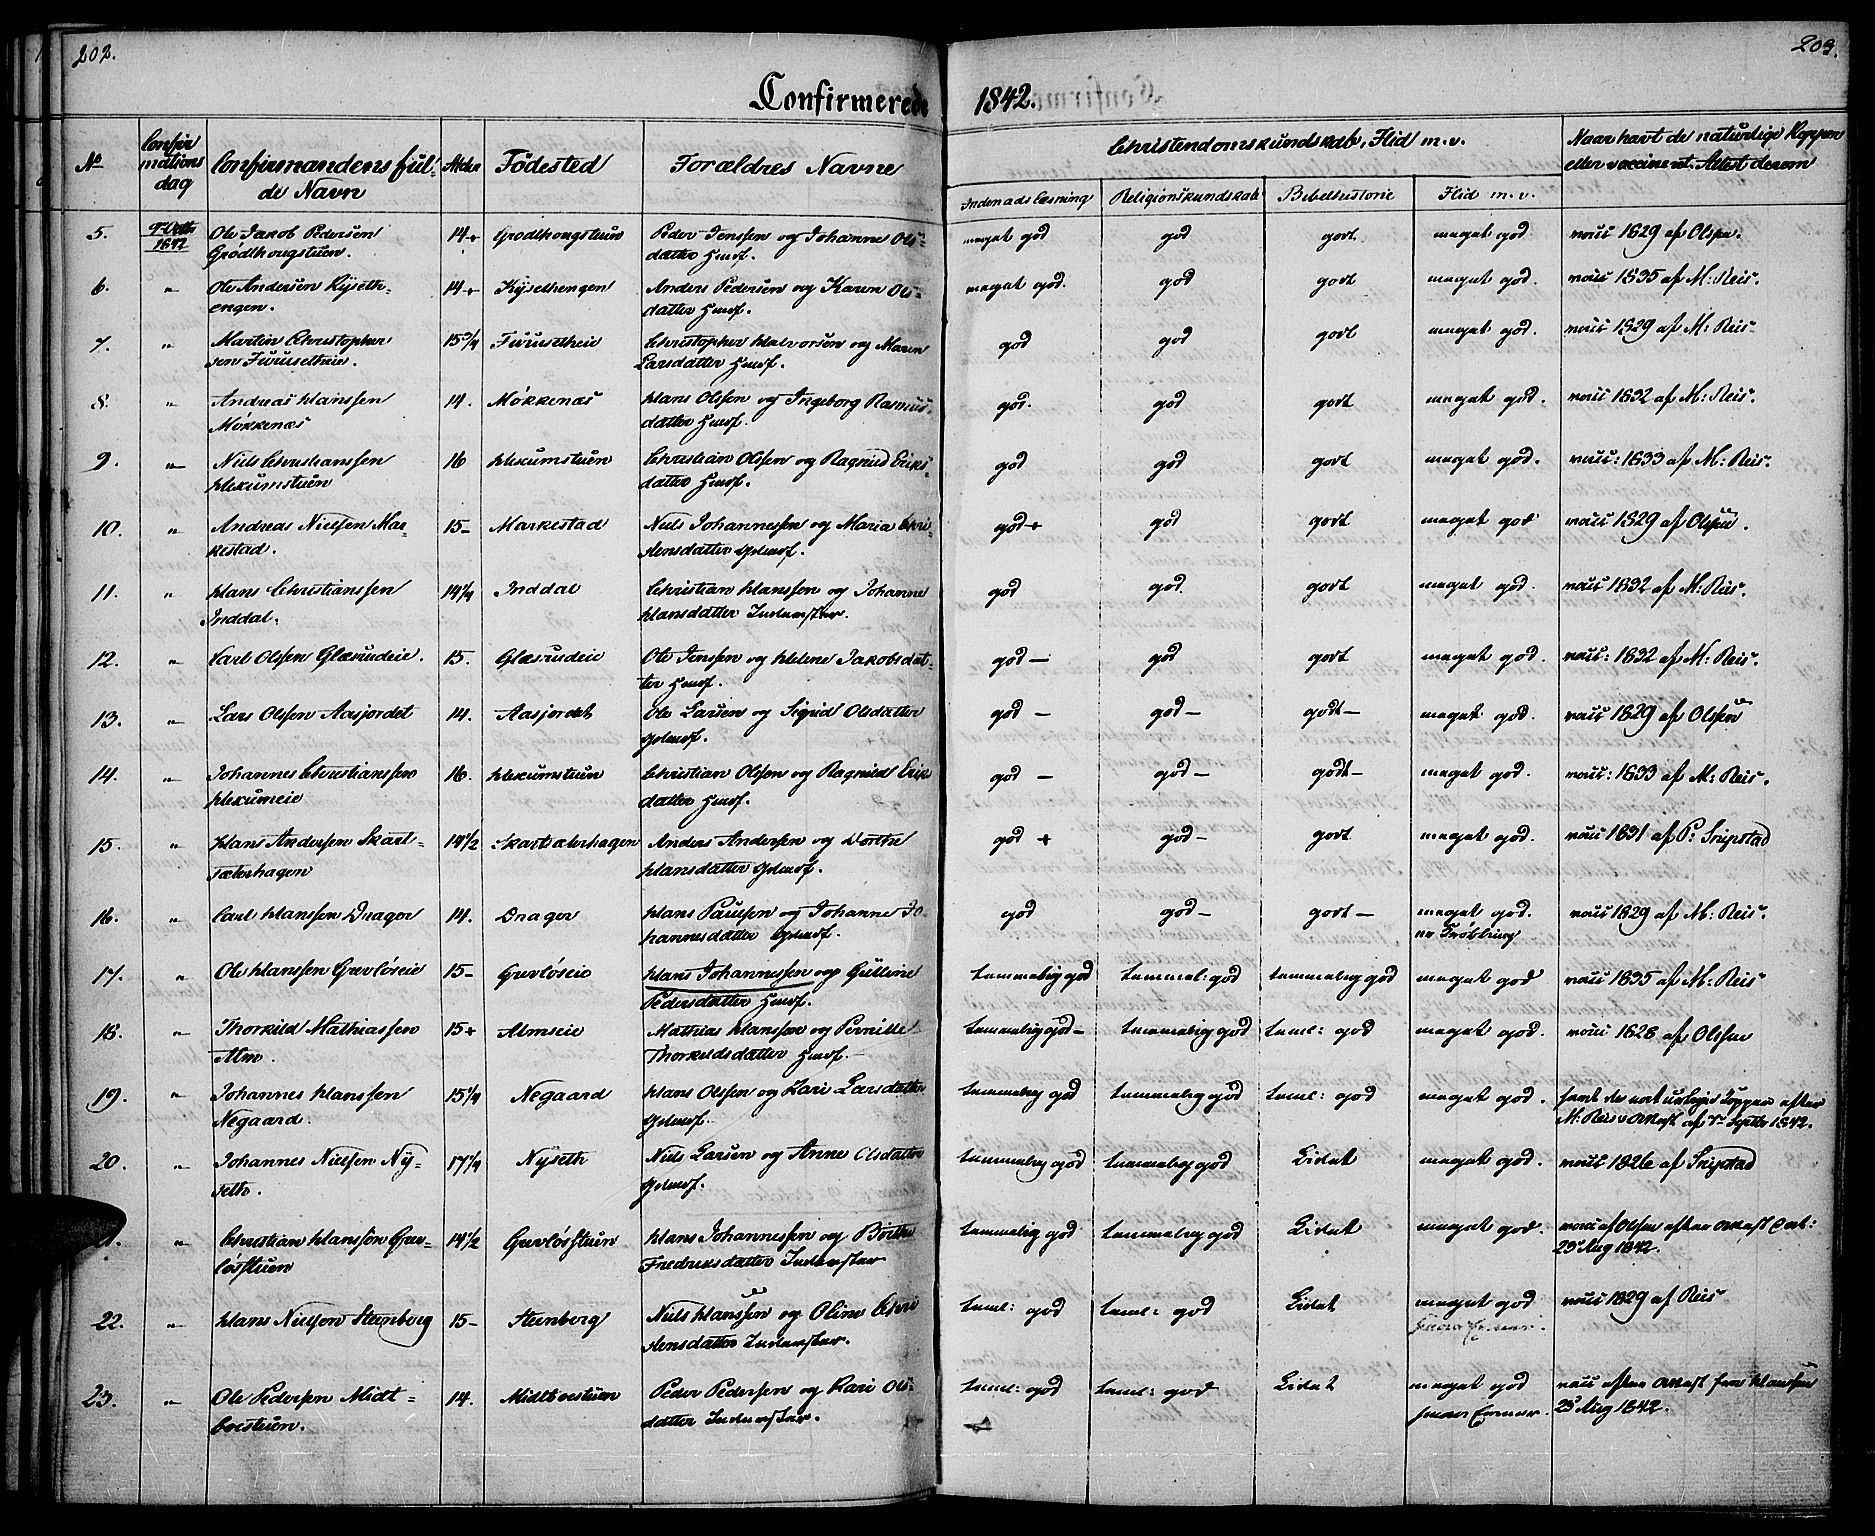 202.
203.
Confirmerede 1842.
No
Confir
mations
dag
Confirmandens ful-
de Navn
Alder
Födested
Forældres Navne
Christendomskundskab, Flid m.v.
Indenads Læsning
Religionskundskab
Bibelhistorie
Flid m.v.
Naar havt de naturlige Kopper
eller vaccineret. Attest derom
5.
1842
Ole Jakob Pedersen
Grødthougstuen.
14+
Grødthougstuen
Peder Jenssen og Johanne Ols-
datter Husf.
meget god
god
godt
meget god
vacc 1829 af Olssen.
6.
"
Ole Andersen Kyseth-
engen.
14+
Kysethengen
Anders Pedersen og Karen Ols-
datter Husf.
meget god.
god
godt
meget god.
vacc 1835 af M: Reis.
7.
"
Martin Christopher
sen Furuseteie.
15 3/4
Furuseteie
Christopher Halvorsen og Maren
Larsdatter Husf.
god
god
godt
meget god.
vacc 1829 af M: Reis
8.
"
Andreas Hanssen
Møkkenæs
14.
Møkkenæs
Hans Olssen og Ingeborg Rasmus-
datter Husf.
god.
god
godt
meget god.
vacc 1832 af M: Reis.
9.
"
Niels Christianssen
Hekumstuen
16
Hekumstuen
Christian Olssen og Ragnild Eriks-
datter Husf.
god
god
godt
meget god.
vacc: 1833 af M: Reis.
10.
"
Andreas Nielsen Mar-
kestad.
15-
Markestad
Niels Johannessen og Maria Chri-
stensdatter Gdmf.
god+
god
godt
meget god
vacc 1829 af Olssen.
11.
"
Hans Christianssen
Inddal.
14 1/4
Inddal
Christian Hanssen og Johanne
Hansdatter Inderster.
god
god.
godt
meget god.
vacc 1832 af M: Reis.
12.
"
Carl Olssen Glæsrudeie.
15.
Glæsrudeie
Ole Jenssen og Helene Jakobsdat-
ter Husf.
god -
god
godt
meget god.
vacc: 1832 af M: Reis.
13.
"
Lars Olssen Aasjordet
14.
Aasjordet
Ole Larsen og Sigrid Olsdatter
Gdmf.
god -
god -
godt -
meget god.
vacc 1829 af Olssen
14.
"
Johannes Christianssen
Hekumeie
16.
Hekumstuen
Christian Olssen og Ragnild Eriks
datter Husf.
god -
god -
godt -
meget god.
vacc: 1833 af M: Reis.
15.
"
Hans Andersen Skart-
sæterhagen
14 1/2
Skartsæterhagen
Anders Andersen og Dorthe
Hansdatter Gdmf.
god +
god -
godt
meget god.
vacc 1831 af P: Snipstad
16.
"
Carl Hanssen Dragor
14.
Dragor
Hans Paulsen og Johanne Jo-
hannesdatter Gdmf.
god
god -
godt -
meget god.
vacc 1829 af M: Reis.
17.
"
Ole Hanssen Grevløseie
15-
Grevløseie
Hans Johannessen og Gulline
Pedersdatter Husf.
temmelig god
temmel: god
temmeleg god
meget god
vacc 1835 af M: Reis
18.
"
Thorkild Mathiassen
Alm.
15+
Almseie
Mathias Hanssen og Pernille
Thorkildsdatter Husf.
temmelig god -
temmelig god
teml: god
meget god.
vacc 1828 af Olssen
19.
"
Johannes Hanssen
Negaard.
15 1/4
Negaard
Hans Olssen og Kari Larsdatter
Gdmf.
temmeleg god
temmeleg god
teml: god
meget god.
M: Reis's Attest af 5te Septbr 1842.
20.
"
Johannes Nielsen Ny-
seth.
17 1/4
Nyseth
Niels Larsen og Anne Olsdatter
Gdmf.
temmeleg god
temmeleg god
Lidet
meget god.
vacc 1826 af Snipstad
21.
"
Christian Hanssen Grev-
løsstuen
14 1/2
Grevløsstuen
Hans Johannessen og Birthe
Fredriksdatter Inderster
temmelig god
temmeleg god
Lidet
meget god.
vacc af Olsen efter Attest Dat:
25 Aug 1842.
22.
"
Hans Nielsen Steenberg
15-
Steenberg
Niels Hanssen og Oline Chri
stensdatter Inderster.
teml: god
teml: god
Lidet
meget god
vacc 1829 af Reis
23.
"
Ole Pedersen Midt-
boestuen.
14.
Midtboestuen
Peder Pedersen og Kari Ols-
datter Inderster.
teml: god
teml: god
Lidet
meget god
vacc efter Attest fra Hanssen
25 Aug 1842.